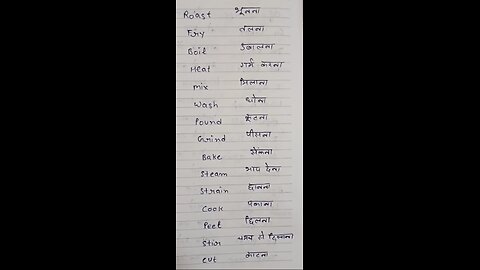 Roast भूनना
Fry तलना
Boil उबालना
Heat गर्म करना
Mix मिलाना
Wash धोना
Pound कूटना
Grind पीसना
Bake सेंकना
Steam भाप देना
Strain छानना
Cook पकाना
Peel छिलना
Stir चम्मच से हिलाना
Cut काटना